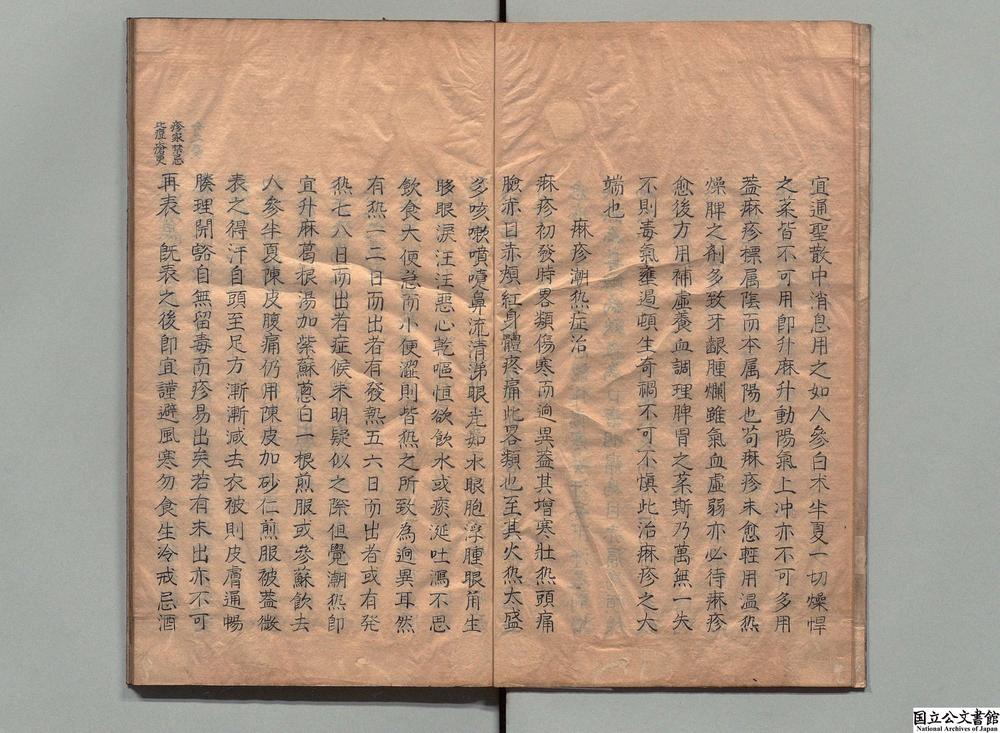 宜通聖散中消息用之如人參白朮半夏一切燥悍
之薬皆不可用即升麻升動陽氣上冲亦不可多用
蓋麻疹標属陰而本属陽也苟痳疹未愈輕用温热
燥脾之剤多致牙齦腫爛雖氣血虚弱亦必待痳疹
愈後方用補虚養血調理脾胃之薬斯乃萬無一失
不則毒氣壅遏頓生奇禍不可不愼此治痳疹之大
端也
麻疹潮热症治
麻疹初發時畧類傷寒而逈異葢其增寒壮热頭痛
臉赤目赤頬紅身體疼痛此畧類也至其火热太盛
多咳嗽噴嚏鼻流清涕眼光如水眼胞浮腫眼角生
眵眼淚汪汪惡心乾嘔恒欲飲水或痰涎吐瀉不思
飲食大便急而小便澀則皆热之所致為逈異耳然
有热一二日而出者有發熟五六日而出者或有発
热七八日而出者症候未明疑似之際但覺潮热即
宜升麻葛根湯加紫蘇蔥白一根煎服或參蘇飲去
人參半夏陳皮腹痛仍用陳皮加砂仁煎服被葢微
表之得汗自頭至足方漸漸減去衣被則皮膚通暢
腠理開豁自無留毒而疹易出矣若有未出亦不可
再表 既表之後即宜謹避風寒勿食生冷戒忌酒
疹家禁忌
比痘瘡更
国立公文書館
National Archives of Japan